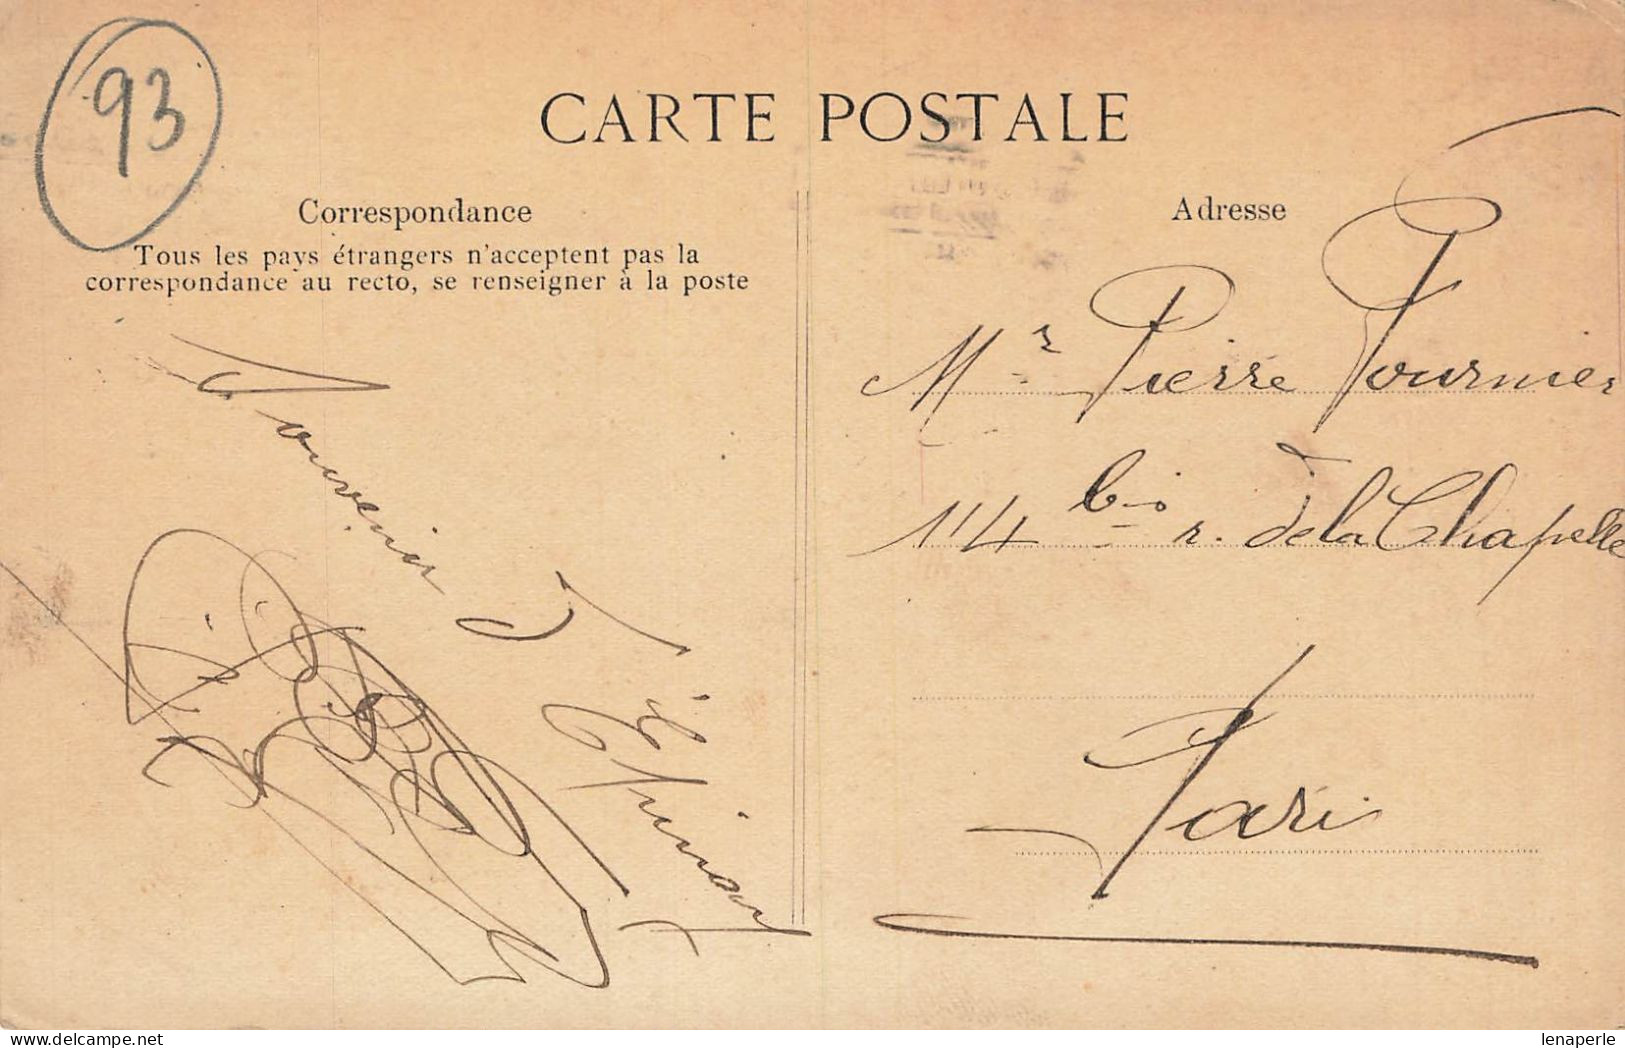 93
CARTE POSTALE
Correspondance
Tous les pays étrangers n'acceptent pas la
correspondance au recto, se renseigner à la poste
Souvenir d'Épinay
Adresse
Mr Pierre Fournier
114 bis r. de la Chapelle
Paris
lenaperle